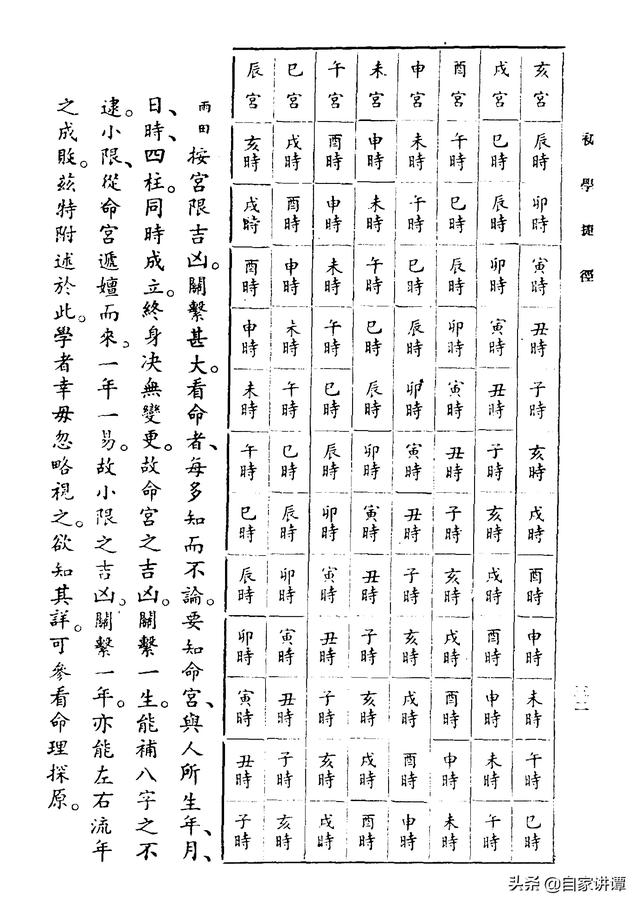 初學捷徑
亥宮 辰時 卯時 寅時 丑時 子時 亥時 戌時 酉時 申時 未時 午時 巳時
戌宮 巳時 辰時 卯時 寅時 丑時 子時 亥時 戌時 酉時 申時 未時 午時
酉宮 午時 巳時 辰時 卯時 寅時 丑時 子時 亥時 戌時 酉時 申時 未時
申宮 未時 午時 巳時 辰時 卯時 寅時 丑時 子時 亥時 戌時 酉時 申時
未宮 申時 未時 午時 巳時 辰時 卯時 寅時 丑時 子時 亥時 戌時 酉時
午宮 酉時 申時 未時 午時 巳時 辰時 卯時 寅時 丑時 子時 亥時 戌時
巳宮 戌時 酉時 申時 未時 午時 巳時 辰時 卯時 寅時 丑時 子時 亥時
辰宮 亥時 戌時 酉時 申時 未時 午時 巳時 辰時 卯時 寅時 丑時 子時
雨田按宮限吉凶。關繫甚大。看命者、每多知而不論。要知命宮、與人所生年、月、
日、時、四柱。同時成立。終身决無變更。故命宮之吉凶。關繫一生。能補八字之不
逮。小限、從命宮遞嬗而來。一年一易。故小限之吉凶。關繫一年。亦能左右流年
之成敗。茲特附述於此。學者幸毋忽略視之。欲知其詳。可參看命理探原。
头条 @自家讲谭